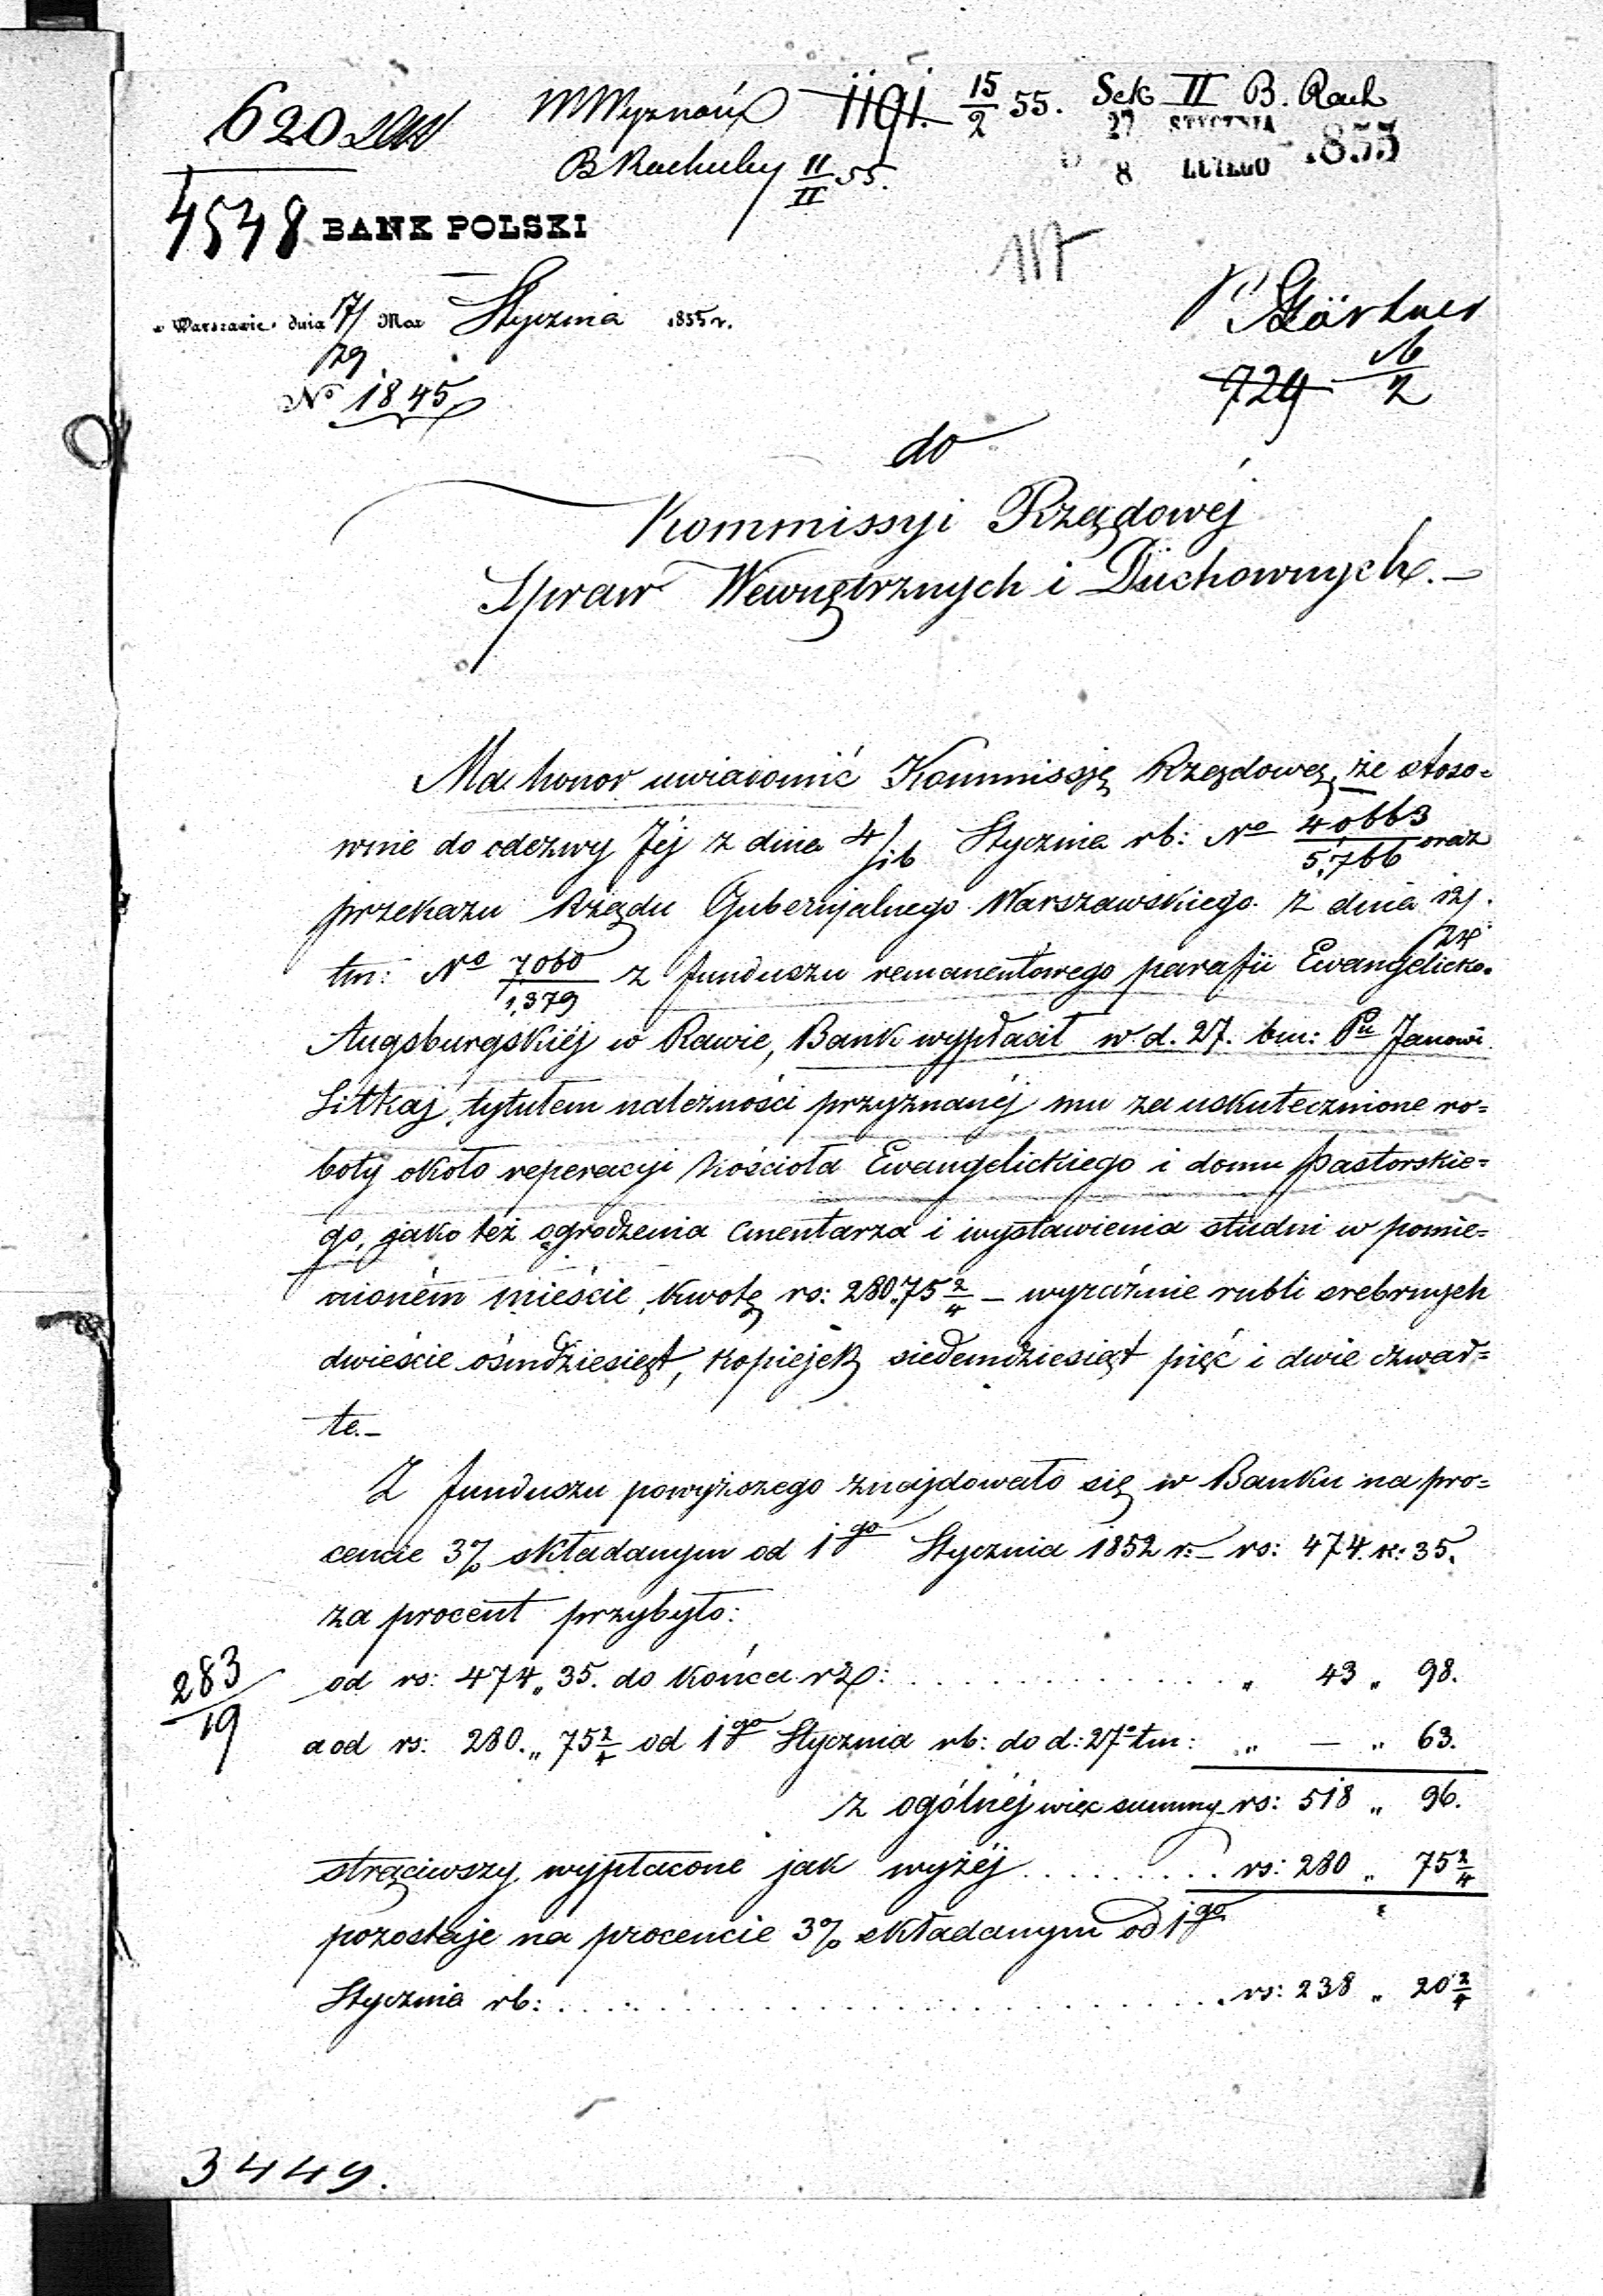 620
4548
W Wyznań 1191. 15/2 55. Sek II B. Rach
B Rachuby II/II 55.
27 STYCZNIA
8 LUTEGO 1855
BANK POLSKI
117
w Warszawie dnia 17/29 Stycznia 1855 r.
P. Gärtner
No 1845
729 16/2
do
Kommissyi Rządowéj
Spraw Wewnętrznych i Duchownych.–
Ma honor uwiadomić Kommissję Rządową, że stoso=
wnie do odezwy Jéj z dnia 4/16 Stycznia rb: No 40663/5,766 oraz
przekazu Rządu Gubernjalnego Warszawskiego z dnia 12/24
tm: No 7060/1,379 z funduszu remanentowego parafii Ewangelicko=
Augsburgskiéj w Rawie, Bank wypłacił w d. 27. bm: Pu Janowi
Litkaj, tytułem należności przyznanéj mu za uskutecznione ro=
boty około reperacyi Kościoła Ewangelickiego i domu Pastorskie=
go, jako też ogrodzenia Cmentarza i wystawienia studni w pomie=
nioném mieście, kwotę rs: 280.75 2/4 – wyraźnie rubli srebrnych
dwieście ośmdziesiąt, kopiejek siedemdziesiąt pięć i dwie czwar=
te.–
Z funduszu powyższego znajdowało się w Banku na pro=
cencie 3% składanym od 1go Stycznia 1852 r.– rs: 474. k: 35.
za procent przybyło:
283/19
od rs: 474 „ 35. do końca rz: . . . . . . . . . . . . „ 43 „ 98.
a od rs: 280. „ 75 2/4 od 1go Stycznia rb: do d: 27o tm: „ — „ 63.
z ogólnéj więc summy rs: 518 „ 96.
strąciwszy wypłacone jak wyżéj . . . . . . . . rs: 280 „ 75 2/4
pozostaje na procencie 3% składanym od 1go
Stycznia rb: . . . . . . . . . . . . . . . . . . . . . . . rs: 238 „ 20 2/4
3449.